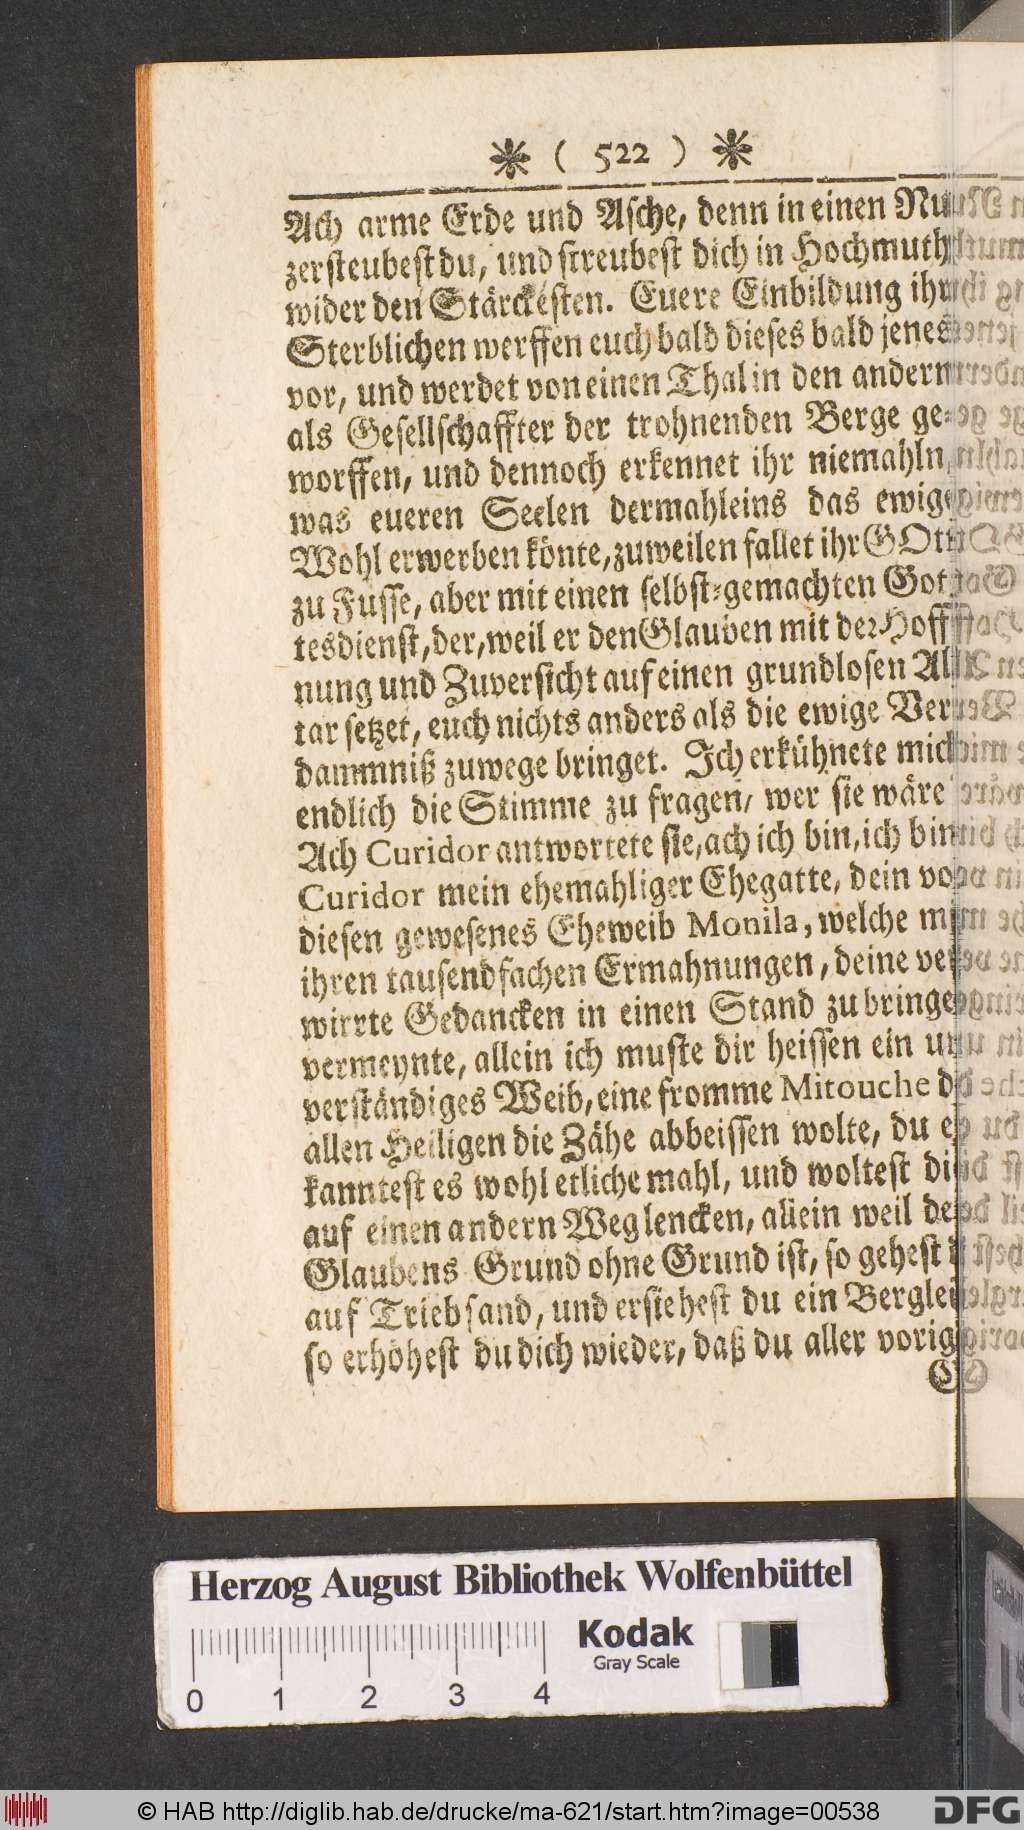 * ( 522 ) *
Ach arme Erde und Asche, denn in einen Nu
zersteubest du, und streubest dich in Hochmuth
wider den Stärckesten. Euere Einbildung ihr
Sterblichen werffen euch bald dieses bald jenes
vor, und werdet von einen Thal in den andern
als Gesellschaffter der trohnenden Berge ge-
worffen, und dennoch erkennet ihr niemahln,
was eueren Seelen dermahleins das ewige
Wohl erwerben könte, zuweilen fallet ihr GOtt
zu Fusse, aber mit einen selbst-gemachten Got
tesdienst, der, weil er den Glauben mit der Hoff
nung und Zuversicht auf einen grundlosen Al
tar setzet, euch nichts anders als die ewige Ver
dammniß zuwege bringet. Ich erkühnete mich
endlich die Stimme zu fragen, wer sie wäre
Ach Curidor antwortete sie, ach ich bin, ich bin
Curidor mein ehemahliger Ehegatte, dein vor
diesen gewesenes Eheweib Monila, welche mit
ihren tausendfachen Ermahnungen, deine ver
wirrte Gedancken in einen Stand zu bringen
vermeynte, allein ich muste dir heissen ein un
verständiges Weib, eine fromme Mitouche die
allen Heiligen die Zähe abbeissen wolte, du er
kanntest es wohl etliche mahl, und woltest dich
auf einen andern Weg lencken, allein weil dein
Glaubens Grund ohne Grund ist, so gehest du
auf Triebsand, und ersiehest du ein Berglein
so erhöhest du dich wieder, daß du aller vorig
Herzog August Bibliothek Wolfenbüttel
Kodak
Gray Scale
0 1 2 3 4
© HAB http://diglib.hab.de/drucke/ma-621/start.htm?image=00538
DFG